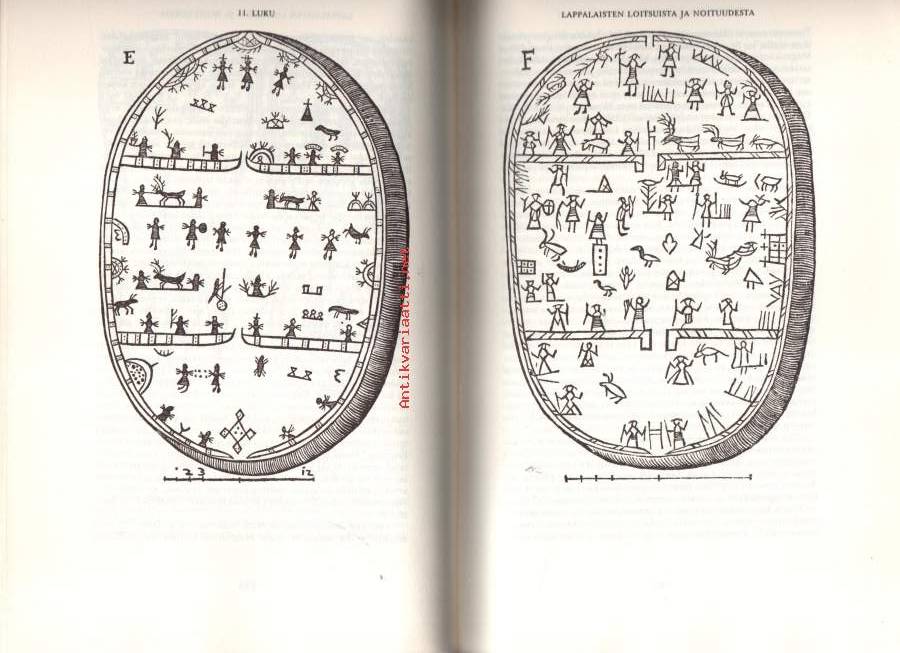 11. LUKU
E
1 2 3 12
Antikvariaatti.net
LAPPALAISTEN LOITSUISTA JA NOITUUDESTA
F